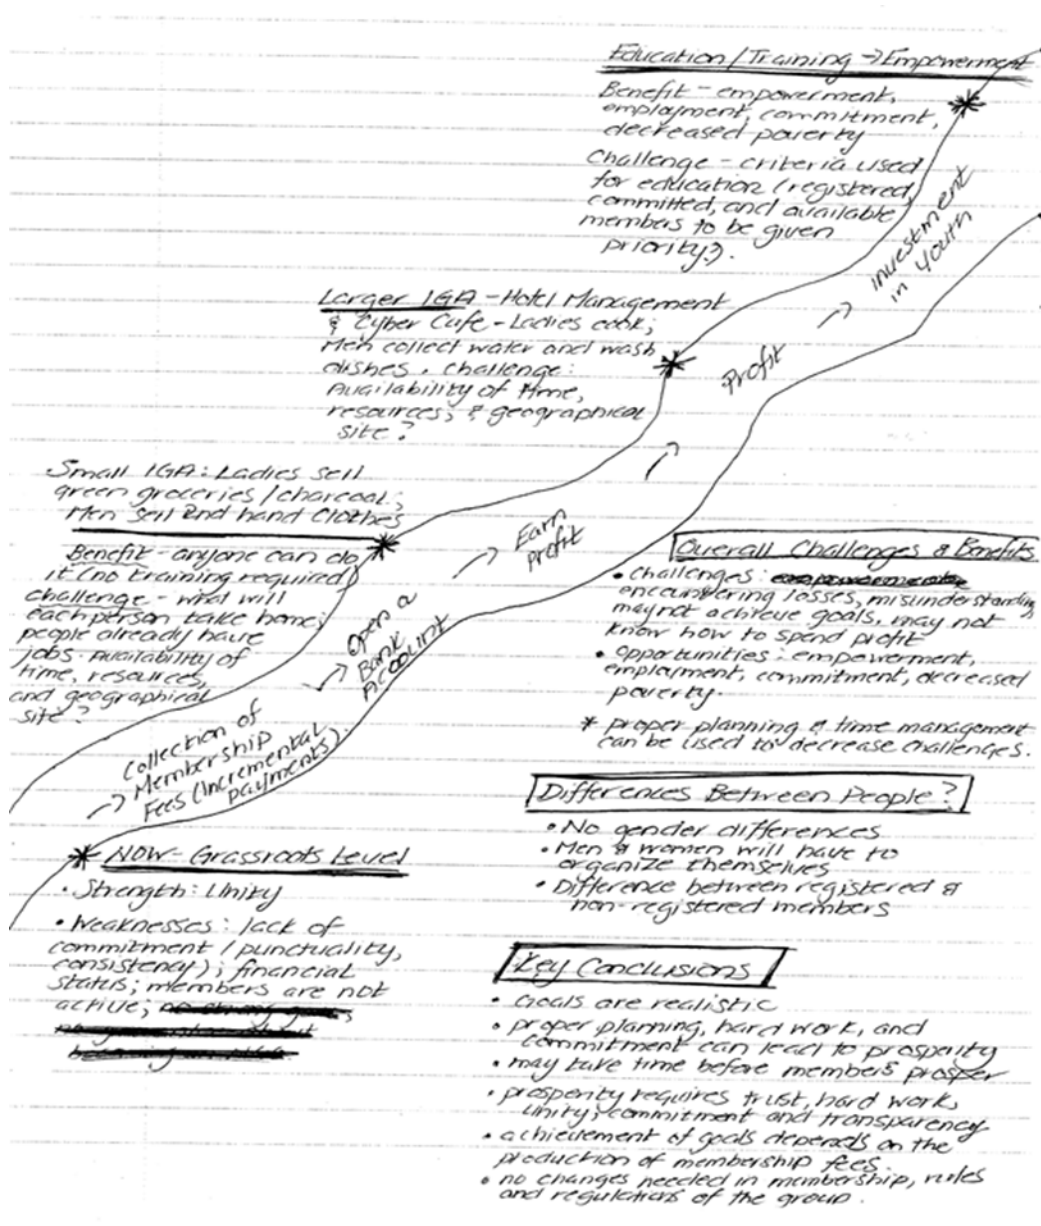 Education/Training → Empowerment
Benefit - empowerment,
employment, commitment,
decreased poverty
Challenge - criteria used
for education (registered,
committed, and available
members to be given
priority?).
Investment
in Youth
Larger IGA - Hotel Management
& Cyber Cafe - Ladies cook;
Men collect water and wash
dishes. Challenge:
Availability of time,
resources, & geographical
site?
Profit
Small IGA: Ladies sell
green groceries/charcoal;
Men sell 2nd hand clothes
Benefit - anyone can do
it (no training required)
challenge - what will
each person take home;
people already have
jobs. Availability of
time, resources,
and geographical
site?
Earn
profit
Open a
Bank
Account
Collection of
Membership
Fees (Incremental
payments).
* NOW - Grassroots Level
• Strength: Unity
• Weaknesses: lack of
commitment (punctuality,
consistency); financial
status; members are not
active;
Overall Challenges & Benefits
• Challenges:
encountering losses, misunderstanding,
may not achieve goals, may not
know how to spend profit
• opportunities: empowerment,
employment, commitment, decreased
poverty.
* proper planning & time management
can be used to decrease challenges.
Differences Between People?
• No gender differences
• Men & women will have to
organize themselves
• Difference between registered &
non-registered members
Key Conclusions
• Goals are realistic
• proper planning, hard work, and
commitment can lead to prosperity
• may take time before members prosper
• prosperity requires trust, hard work,
unity, commitment and transparency
• achievement of goals depends on the
production of membership fees.
• no changes needed in membership, rules
and regulations of the group.